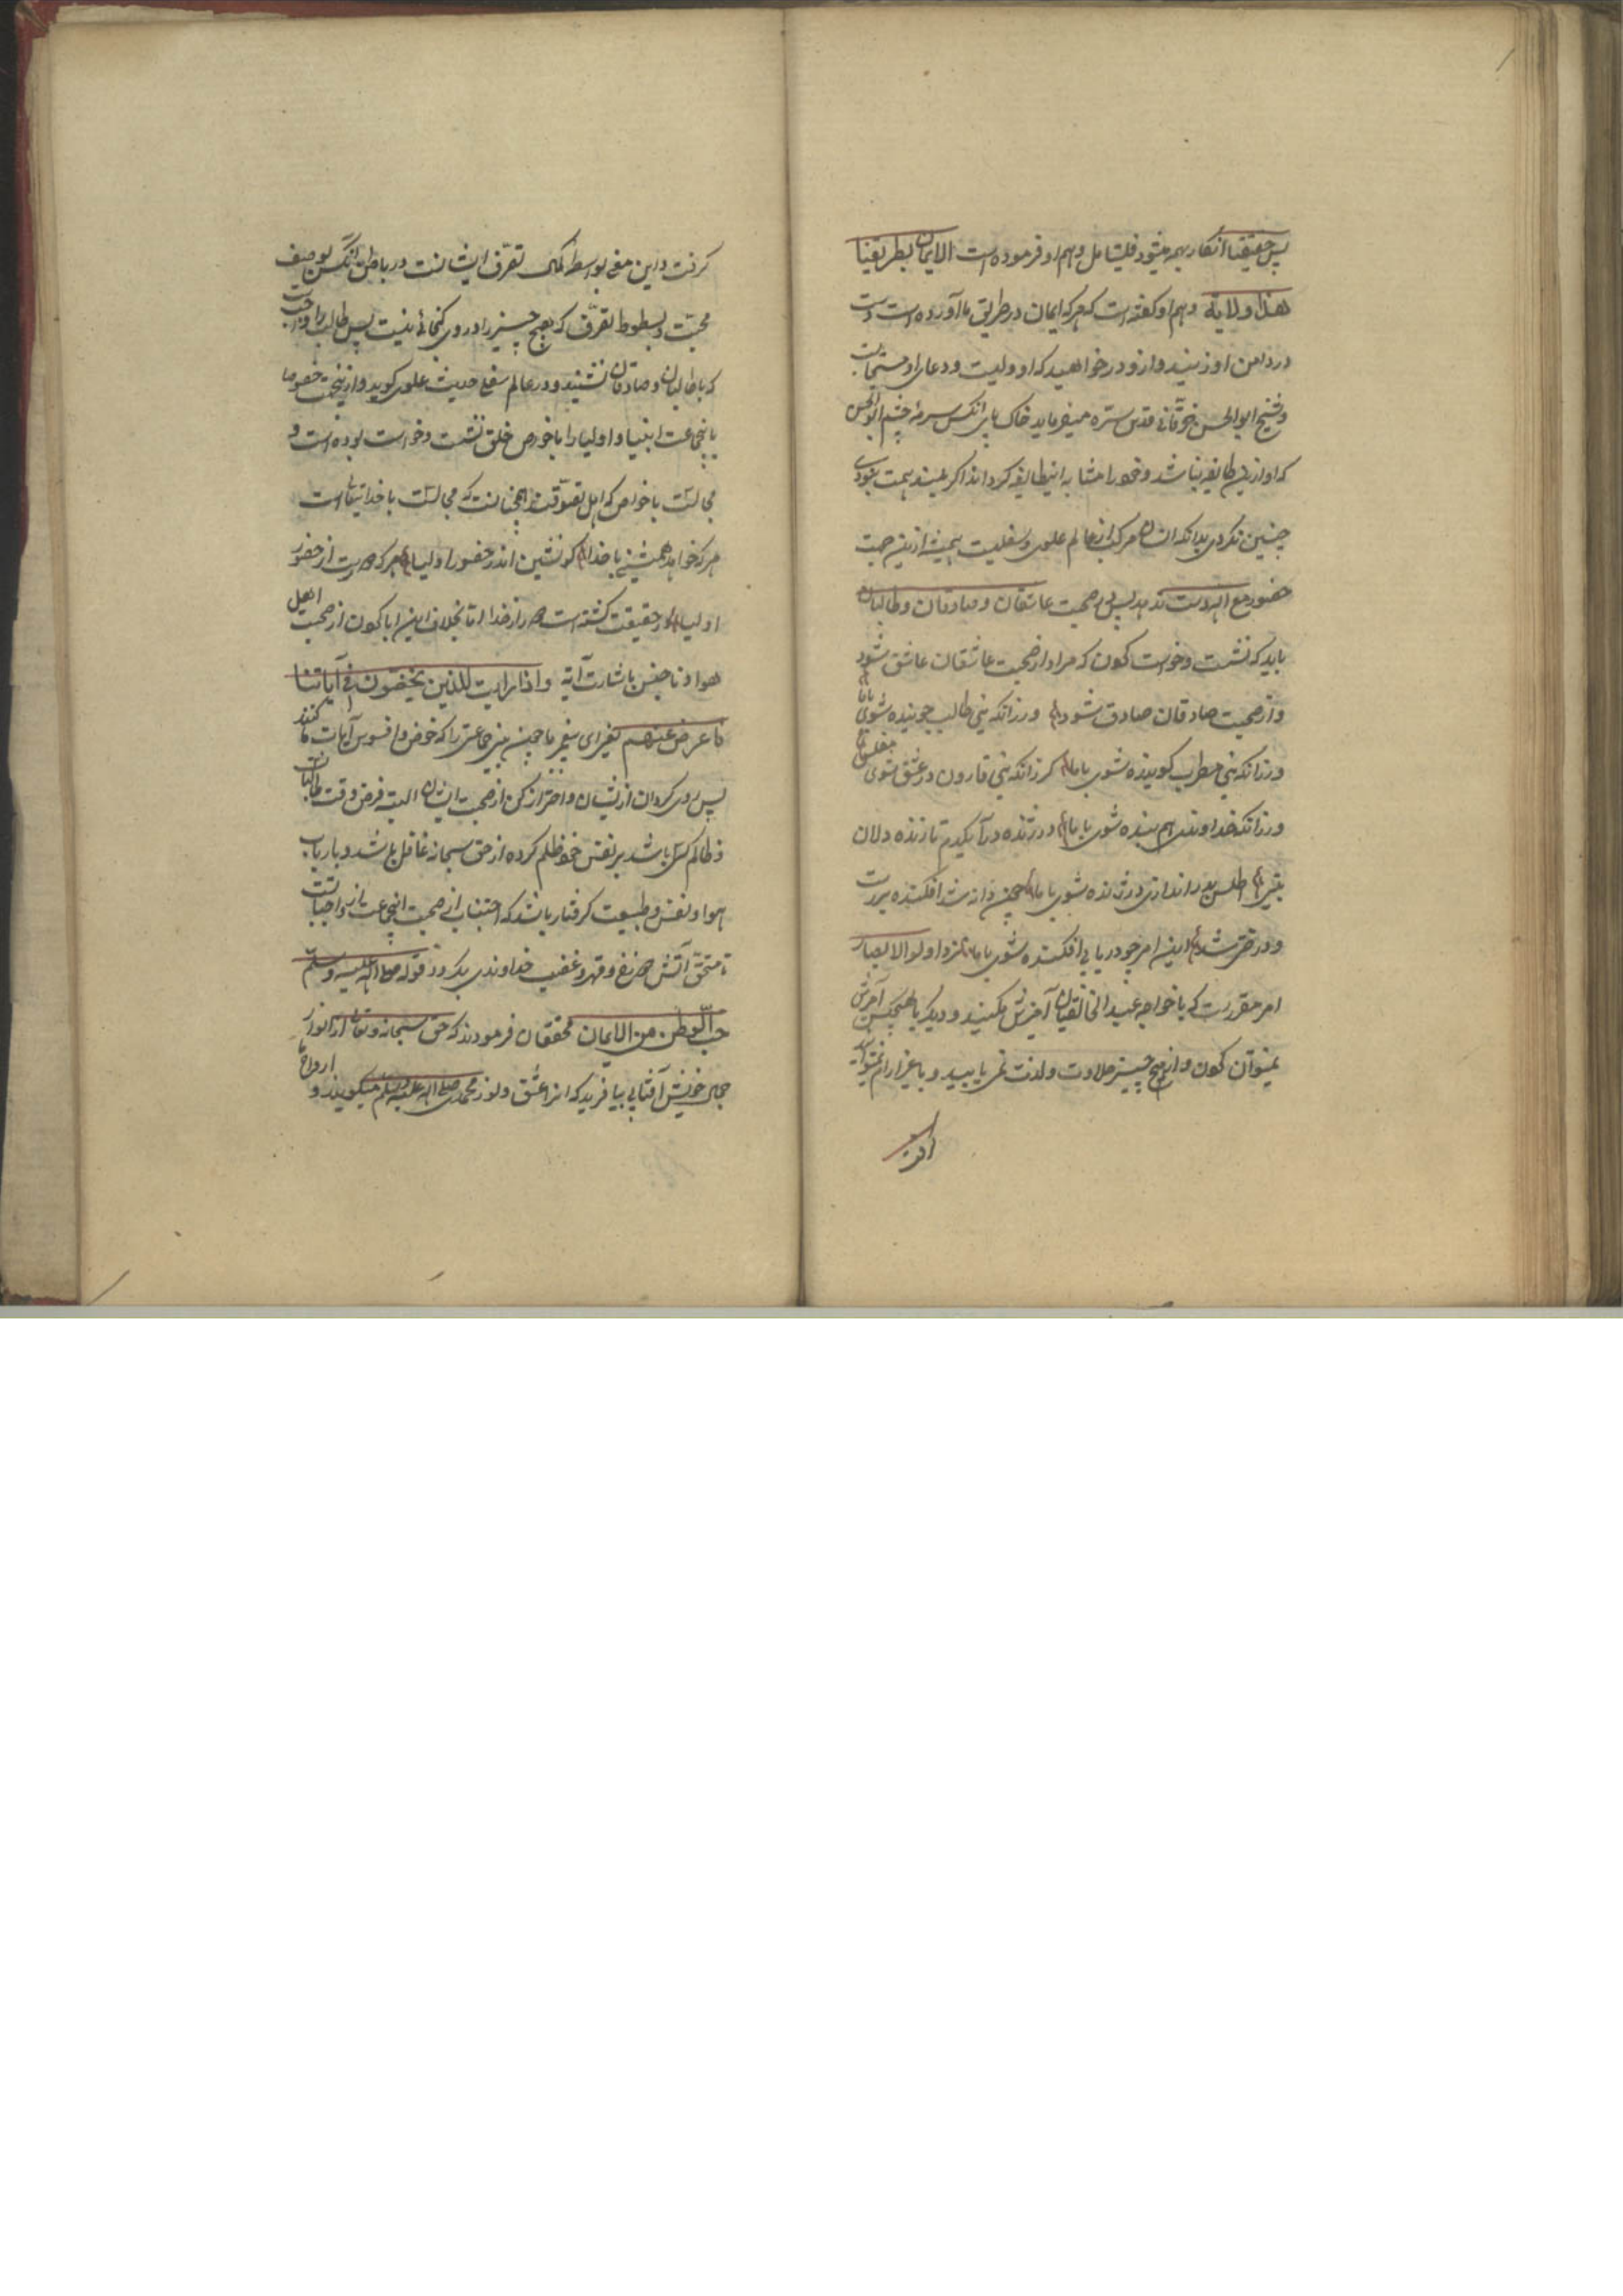 پس حقیقتا انکار همه میشود فلیتامل و هم او فرموده است الایمان بطریقنا
هذا ولایة و هم او کفته است که هرکه ایمان در طریق ما آورده است دست
در دامن او زنید و ازو در خواهید که او ولیست و دعای او مستجابست
و شیخ ابو الحسن خرقانی قدس سره میفرماید خاک پای انکس سرمه چشم ابو الحسن
که او ازین طایفه نباشد و خود را مشابه اینطایفه کرداند اکر بلند همت بودی
چنین نکردی بدانکه انسان مرکب از عالم علوی و سفلیست همیشه ازین جهت
حضور مع الله دست ندهد پس در صحبت عاشقان و صادقان و طالبان
باید که نشست و خواست کون که مراد از صحبت عاشقان عاشق شود
و از صحبت صادقان صادق شود ورزانکه نیی طالب جوینده شوی باما
ورزانکه نیی مطرب کوینده شوی باما کرزانکه نیی قارون در عشق شوی مفلس
ورزانکه خداوندی هم بنده شوی باما در ژنده درآ یکدم تا زنده دلان
بینی اطلس بدر اندازی در ژنده شوی باما چون دانه شد افکنده بررست
و درختی شد این امر چو دریابی افکنده شوی باما نزد اولو الابصار
امر مقرر است که با خواجه عبد الخالقیان آمیزش میکنند و دیکر با هیچکس آمیزش
نمیتوان کون و از هیچ چیز حلاوت و لذت نمی یابید و با غیر ارام نمیتواند
کرفت
کرفت و این معنی بواسطه کمال تصرف ایشانست در باطن انکس بوصف
محبت و بسطوط تصرف که هیچ چیز را در وی کنجائی نیست پس طالب را واجب
که با طالبان و صادقان نشیند و در عالم سفلی حدیث علوی کوید و ازینجهت خصوصا
باینجماعت انبیا و اولیا را با خورص خلق نشست و خواست بوده است و
مجالست با خواص که اهل تصوفند همچنانست که مجالست با خدایتعالی است
هرکه خواهد همنشینی با خدا کو نشین اندر حضور اولیا هرکه دورست از حضور
اولیا در حقیقت کشته است دور از خدا اما بخلاف این ابا کون از صحبت اهل
هوا و ناجنس باشارت آیه واذا رایت الذین یخوضون فی آیاتنا
فاعرض عنهم یعنی ای پیغمبر ما چون بینی جماعتی را که خوض و افسوس آیات ما کنند
پس روی کردان از ایشان و احتراز کن از صحبت ایشان البته فرض وقت طالبانست
ظالم کسی باشد بر نفس خود ظلم کرده از حق سبحانه غافل باشد و بارباب
هوا و نفس و طبیعت کرفتار باشد که اجتناب از صحبت اینجماعت از واجباتست
تا مستحق آتش دوزخ و قهر و غضب خداوندی نکردد قوله صلی الله علیه وسلم
حب الوطن من الایمان محققان فرمودند که حق سبحانه و تعالی از انوار
جمال خویش آفتابی بیافرید که انرا عشق و نور محمدی صلی الله علیه وسلم میکویند و ارواح